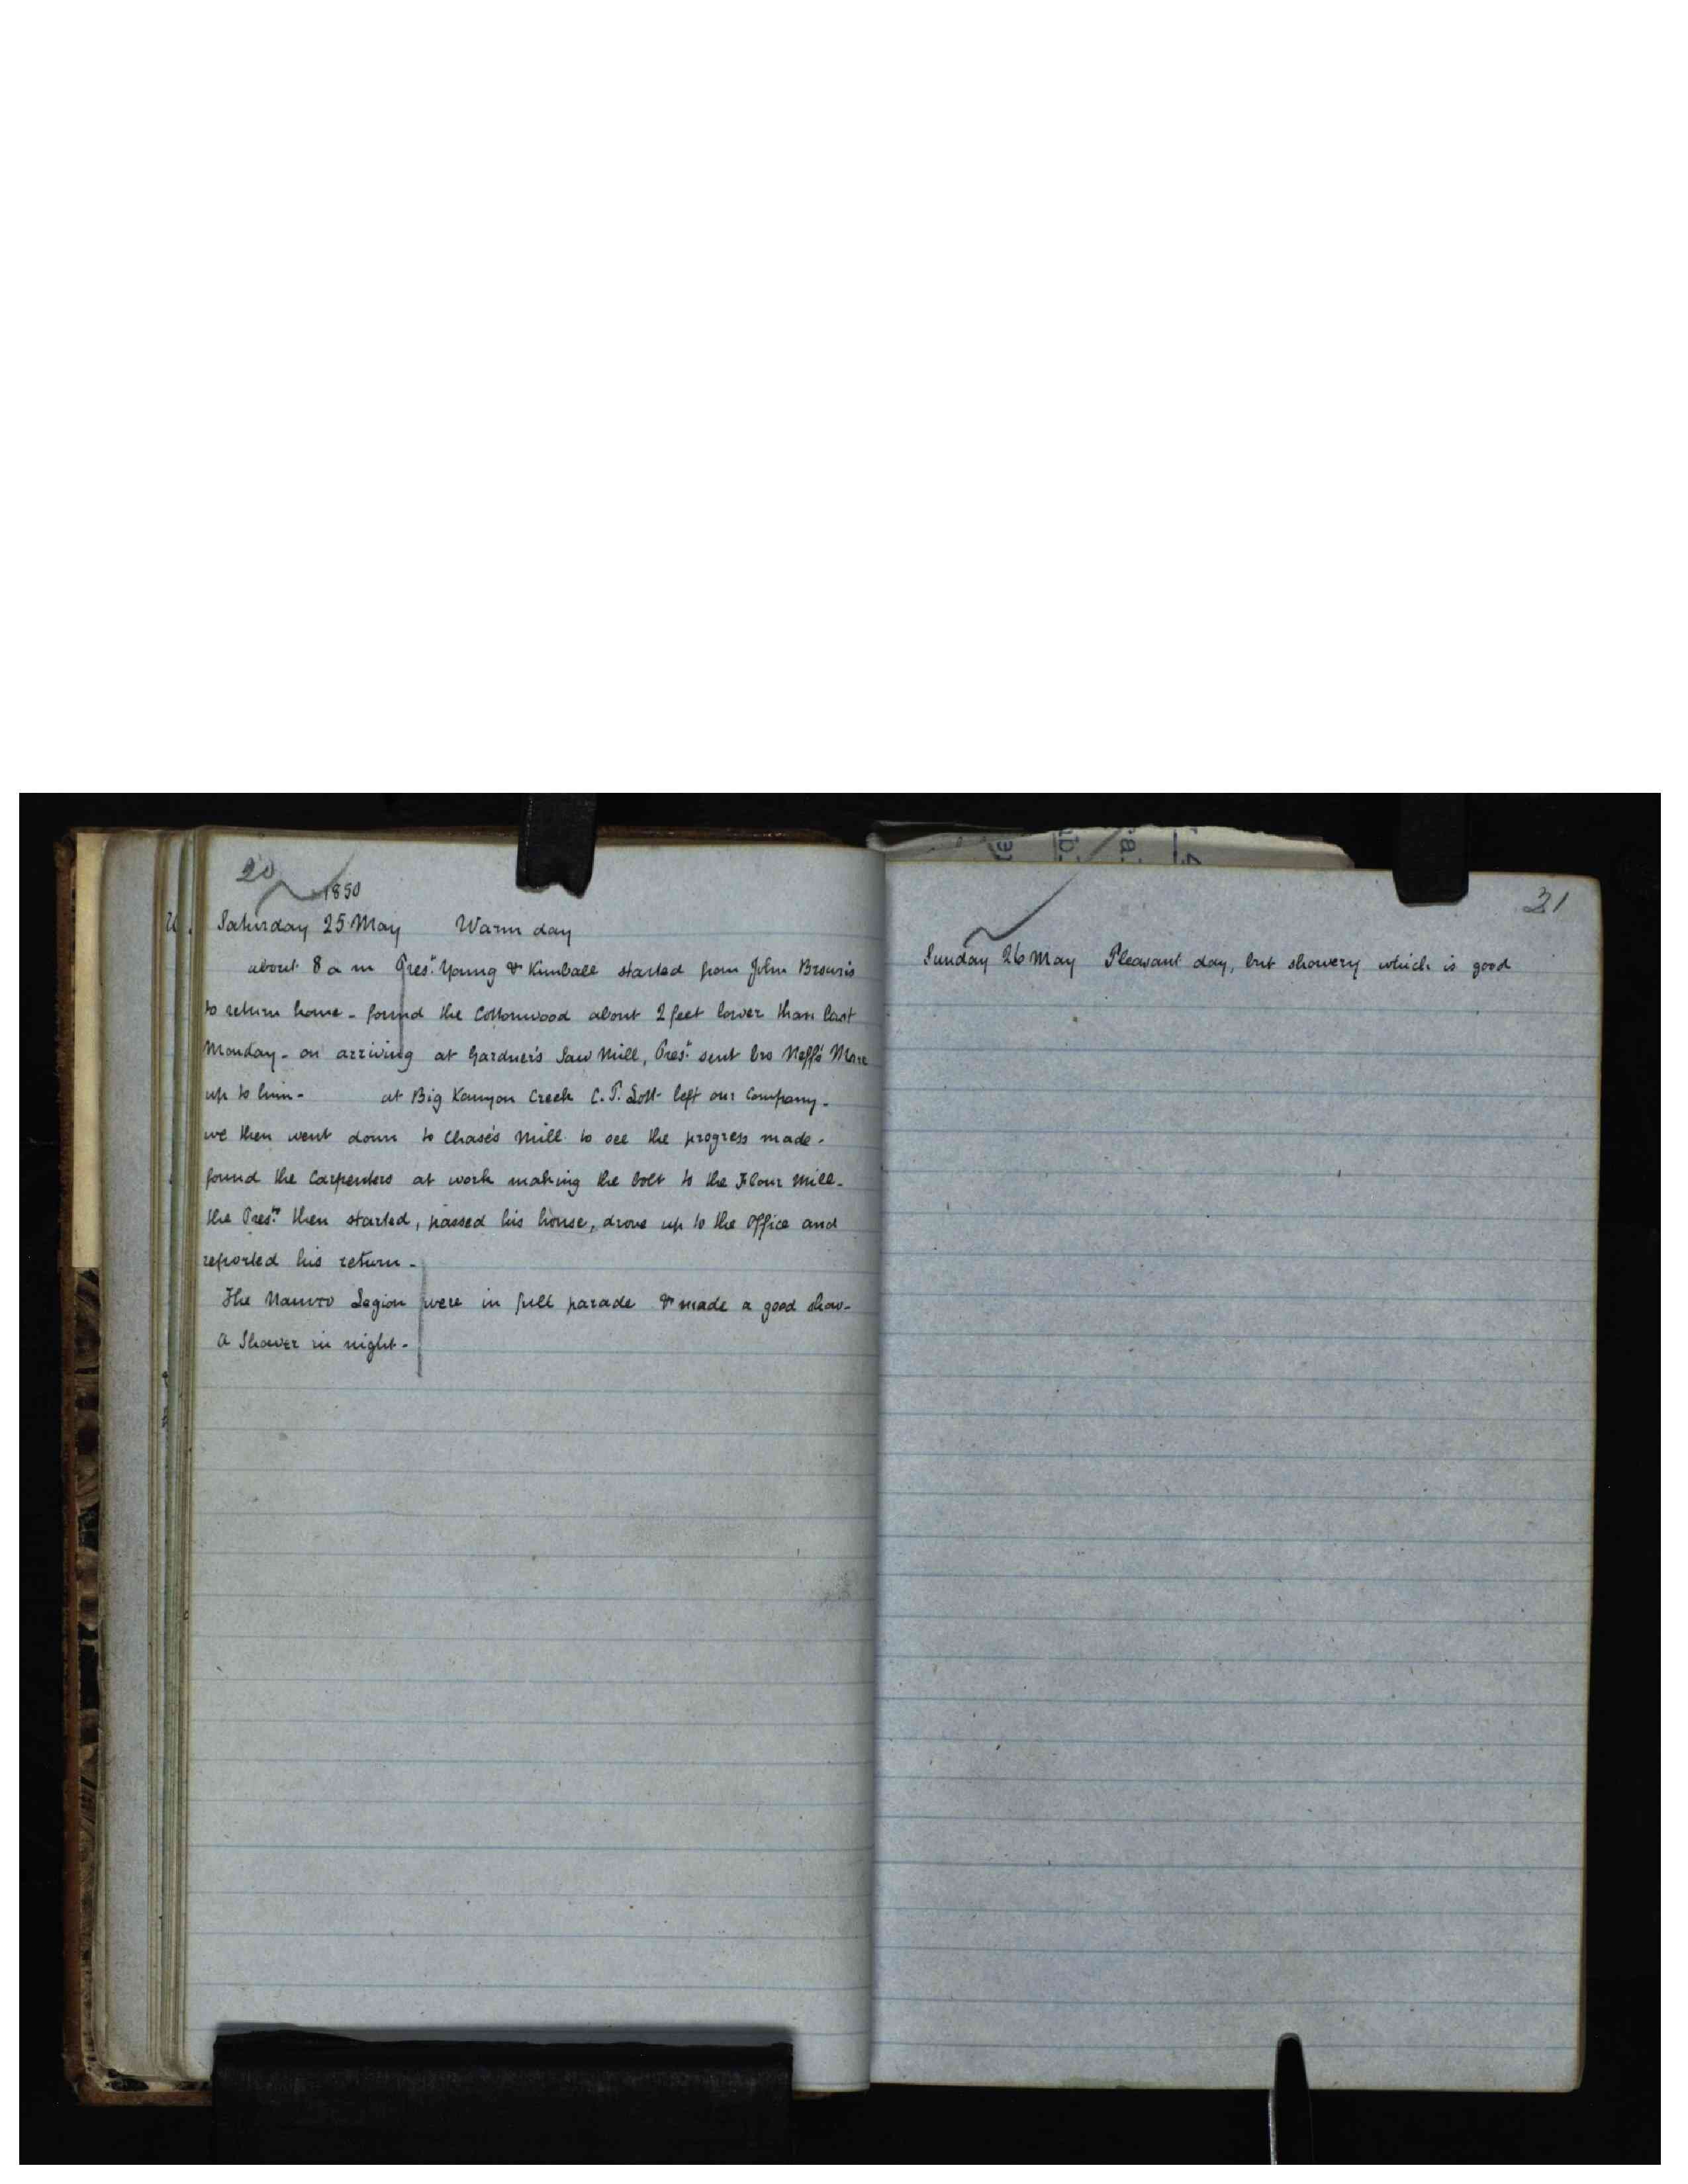 20
1850
Saturday 25 May Warm day
about 8 a m Pres.ts Young & Kimball started from John Brown's
to return home - found the Cottonwood about 2 feet lower than last
Monday - on arriving at Gardner's Saw Mill, Pres.t sent bro Neff's Mare
up to him - at Big Kanyon Creek C. P. Lott left our company -
we then went down to Chase's Mill to see the progress made -
found the Carpenters at work making the bolt to the Flour Mill -
the Pres.t then started, passed his house, drove up to the Office and
reported his return -
The Nauvoo Legion were in full parade & made a good show -
a Shower in night -
21
Sunday 26 May Pleasant day, but showery which is good